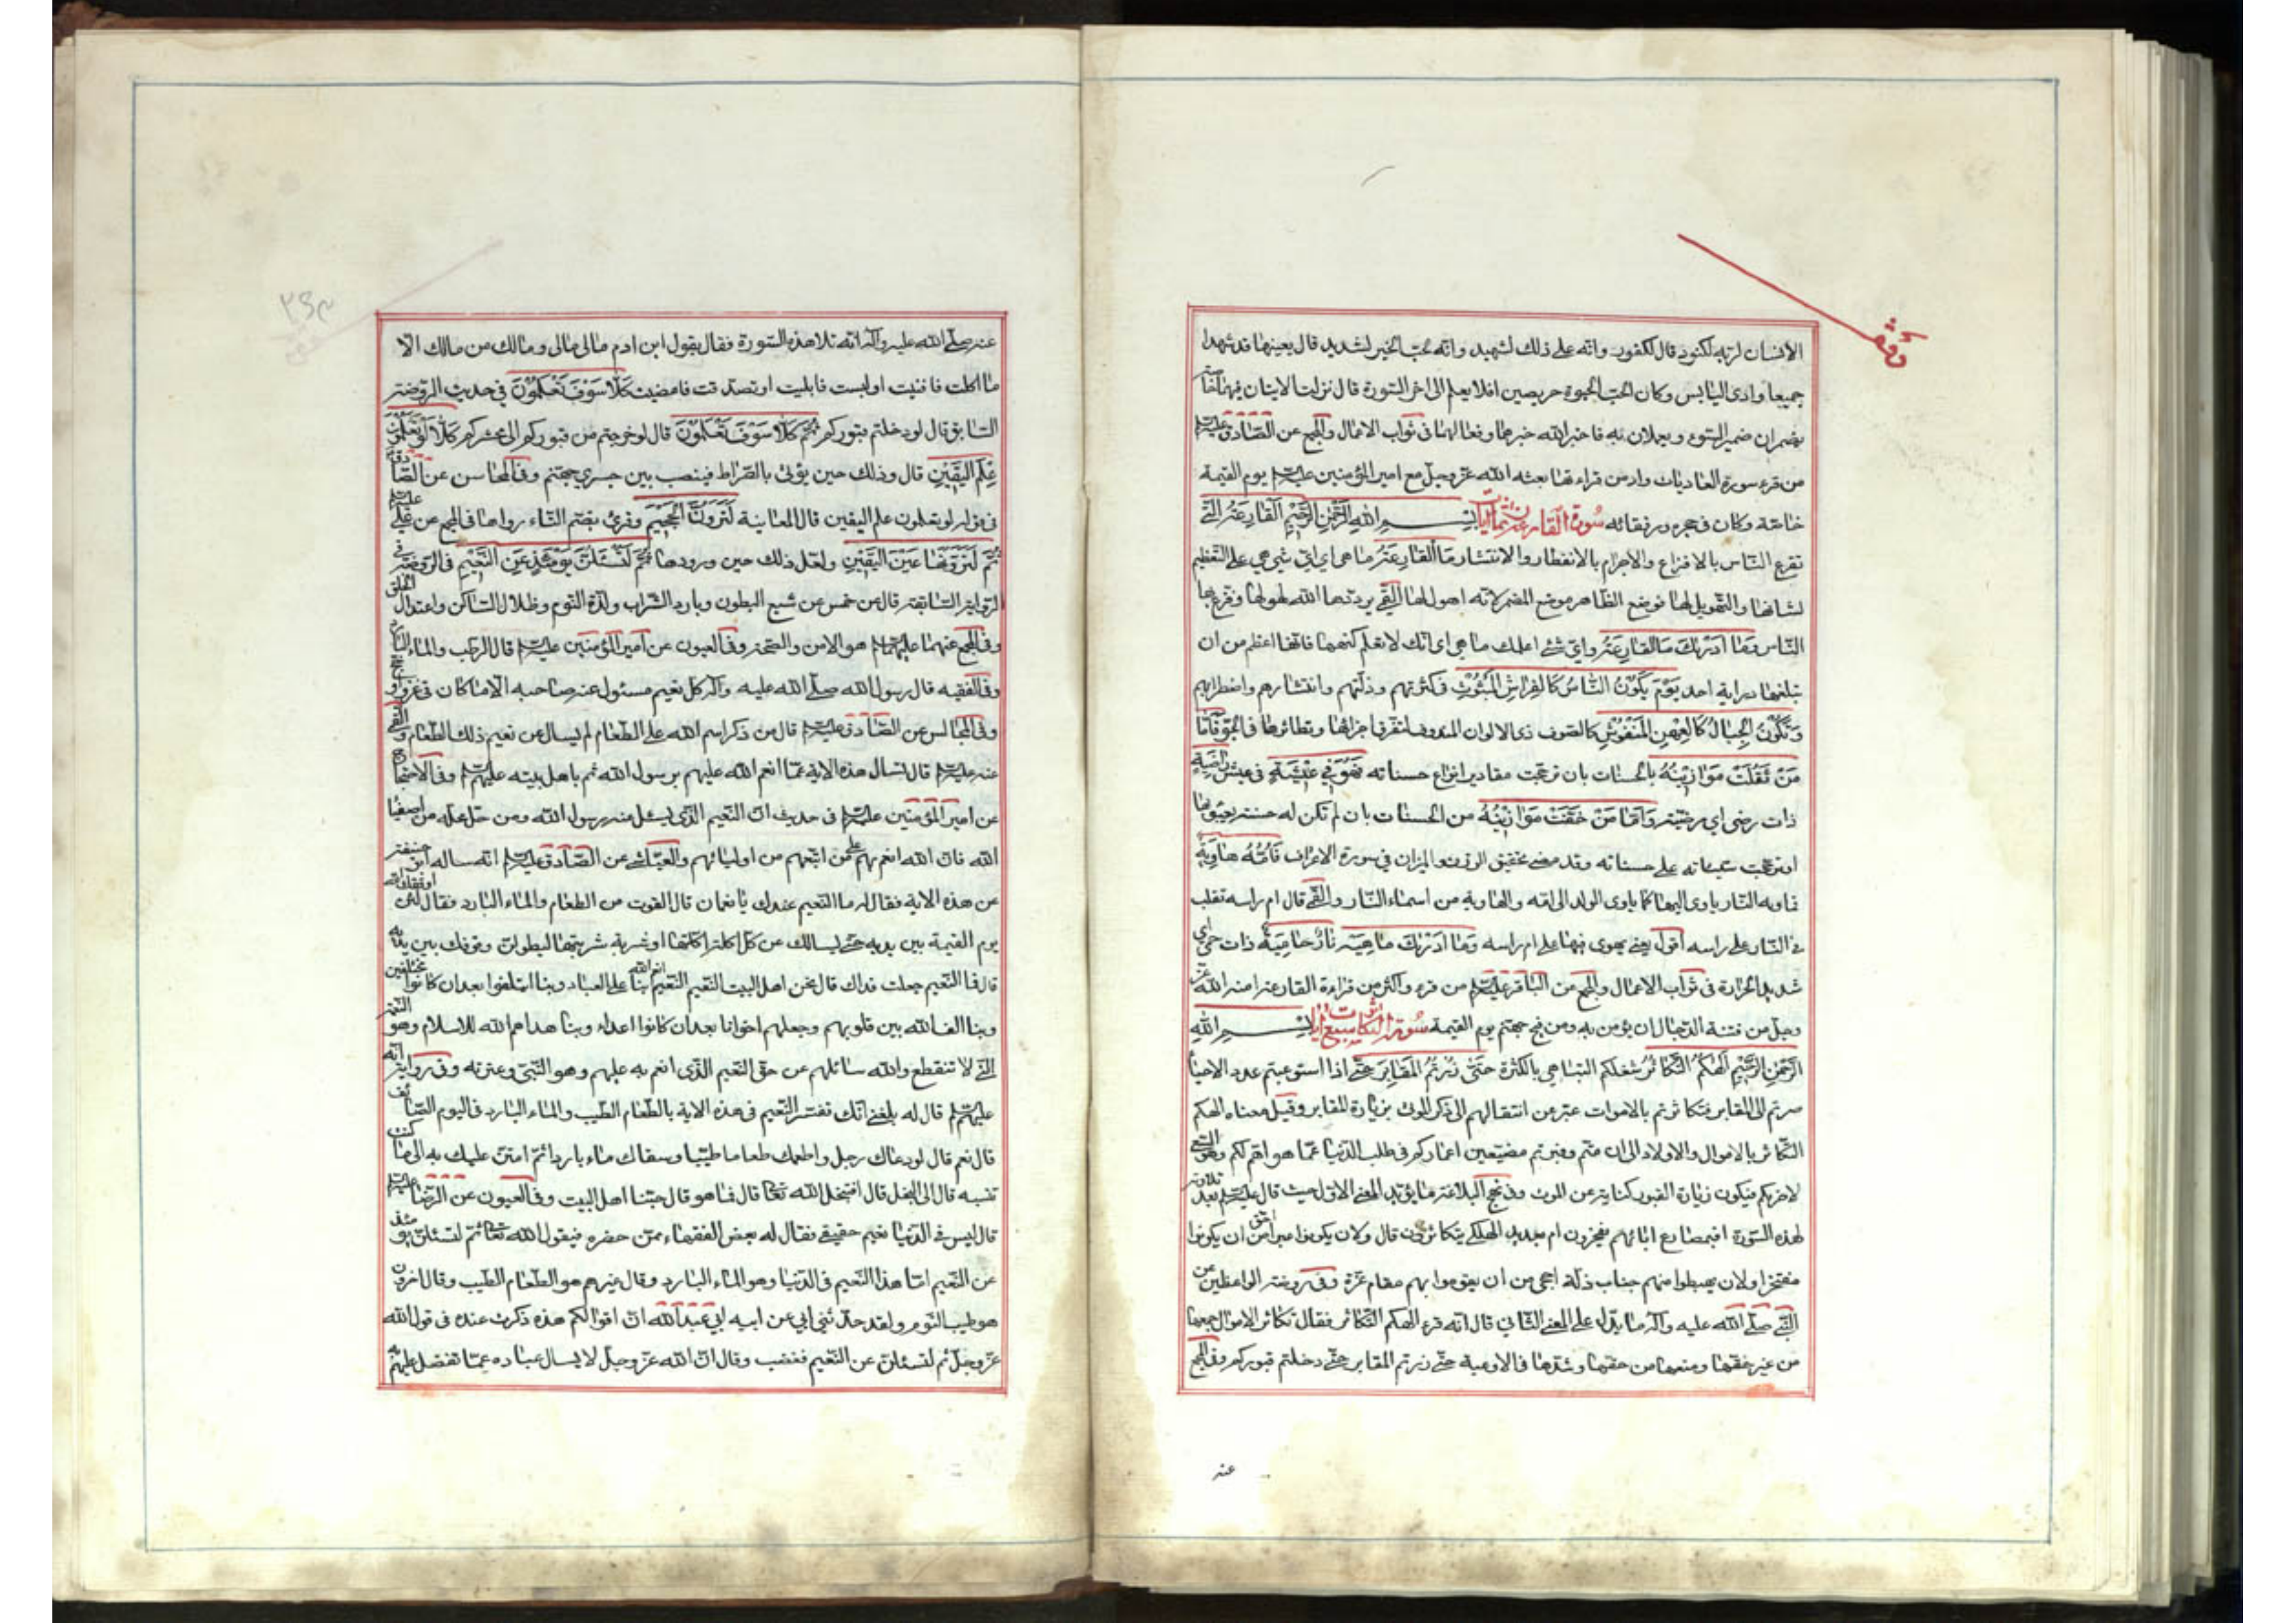 وقف
الانسان لربه لكنود قال لكفور وانه على ذلك لشهيد وانه لحب الخير لشديد قال يعينهما قد شهدا
جميعا وادي اليابس وكان لحب الحيوة حريصين افلا يعلم الى اخر السورة قال نزلت الايتان فيهما خاصة
يضمران ضمير السوء ويعملان به فاخبر الله خبرهما وفعالهما في ثواب الاعمال والمجمع عن الصادق عليه السلم
من قرء سورة العاديات وادمن قراءتها بعثه الله عز وجل مع امير المؤمنين عليه السلم يوم القيمة
خاصة وكان في حجره ورفقائه سورة القارعة ثمان ايات بسم الله الرحمن الرحيم القارعة التي
تقرع الناس بالافزاع والاجرام بالانفطار والانتشار ما القارعة ما هي اي اي شيء هي على التعظيم
لشانها والتهويل لها فوضع الظاهر موضع المضمر لانه اهول لها القمي يرددها الله لهولها وفزع بها
الناس وما ادريك ما القارعة واي شيء اعلمك ما هي اي انك لا تعلم كنهها فانها اعظم من ان
تبلغها دراية احد يوم يكون الناس كالفراش المبثوث في كثرتهم وذلتهم وانتشارهم واضطرابهم
وتكون الجبال كالعهن المنفوش كالصوف ذي الالوان المندوف لتفرق اجزائها وتطائرها في الجو فاما
من ثقلت موازينه بالحسنات بان ترجحت مقادير انواع حسناته فهو في عيشة في عيش راضية
ذات رضى اي مرضية واما من خفت موازينه من الحسنات بان لم تكن له حسنة يعبؤ بها
او ترجحت سيئاته على حسناته وقد مضى تحقيق الوزن والميزان في سورة الاعراف فامه هاوية
فماويه النار ياوي اليها كما ياوي الولد الى امه والهاوية من اسماء النار والقمي قال ام راسه تقلب
في النار على راسه اقول يعني يهوي فيها على ام راسه وما ادريك ماهيه نار حامية ذات حمي اي
شديد الحرارة في ثواب الاعمال والمجمع عن الباقر عليه السلم من قرء واكثر من قراءة القارعة امنه الله عز
وجل من فتنة الدجال ان يؤمن به ومن فيح جهنم يوم القيمة سورة التكاثر ثمان ايات بسم الله
الرحمن الرحيم الهيكم التكاثر شغلكم التباهي بالكثرة حتى زرتم المقابر حتى اذا استوعبتم عدد الاحياء
صرتم الى المقابر فتكاثرتم بالاموات عبر عن انتقالهم الى ذكر الموتى بزيارة المقابر وقيل معناه الهكم
التكاثر بالاموال والاولاد الى ان متم وقبرتم مضيعين اعماركم في طلب الدنيا عما هو اهم لكم وهو السعي
لاخريكم فيكون زيارة القبور كناية عن الموت وفي نهج البلاغة ما يؤيد المعنى الاول حيث قال عليه السلم بعد تلاوته
لهذه السورة افبمصارع ابائهم يفخرون ام بعديد الهلكى يتكاثرون قال ولان يكونوا عبرا احق من ان يكونوا
مفتخرا ولان يهبطوا منهم جناب ذلة احجى من ان يقوموا بهم مقام عزة وفي روضة الواعظين عن
النبي صلى الله عليه واله ما يدل على المعنى الثاني قال انه قرء الهكم التكاثر فقال تكاثر الاموال جمعها
من غير حقها ومنعها من حقها وشدها في الاوعية حتى زرتم المقابر حتى دخلتم قبوركم وفي المجمع
عنه
عنه صلى الله عليه واله انه تلا هذه السورة فقال يقول ابن ادم مالي مالي ومالك من مالك الا
ما اكلت فافنيت او لبست فابليت او تصدقت فامضيت كلا سوف تعلمون في حديث الروضة
السابق قال لو دخلتم قبوركم ثم كلا سوف تعلمون قال لو خرجتم من قبوركم الى محشركم كلا لو تعلمون
علم اليقين قال وذلك حين يؤتى بالصراط فينصب بين جسري جهنم وفي المحاسن عن الصادق
عليه السلم في قوله لو تعلمون علم اليقين قال المعاينة لترون الجحيم وقرئ بضم التاء رواها في المجمع عن علي
ثم لترونها عين اليقين ولعل ذلك حين ورودها ثم لتسئلن يومئذ عن النعيم في الروضة في
الرواية السابقة قال عن خمس عن شبع البطون وبارد الشراب ولذة النوم وظلال المساكن واعتدال الخلق
وفي المجمع عنهما عليهما السلم هو الامن والصحة وفي العيون عن امير المؤمنين عليه السلم قال الرطب والماء البارد
وفي الفقيه قال رسول الله صلى الله عليه واله كل نعيم مسئول عنه صاحبه الا ما كان في غزو او حج
وفي المجالس عن الصادق عليه السلم قال من ذكر اسم الله على الطعام لم يسال عن نعيم ذلك الطعام والقمي
عنه عليه السلم قال تسال هذه الامة عما انعم الله عليهم برسول الله ثم باهل بيته عليهم السلم وفي الاحتجاج
عن امير المؤمنين عليه السلم في حديث ان النعيم الذي يسئل عنه رسول الله ومن حل محله من اصفياء
الله فان الله انعم بهم على من اتبعهم من اوليائهم والعياشي عن الصادق عليه السلم انه ساله ابو حنيفة
عن هذه الاية فقال له ما النعيم عندك يا نعمان قال القوت من الطعام والماء البارد فقال لئن اوقفك الله
يوم القيمة بين يديه حتى يسالك عن كل اكلة اكلتها او شربة شربتها ليطولن وقوفك بين يديه
قال فما النعيم جعلت فداك قال نحن اهل البيت النعيم الذي انعم الله بنا على العباد وبنا ائتلفوا بعد ان كانوا مختلفين
وبنا الف الله بين قلوبهم وجعلهم اخوانا بعد ان كانوا اعداء وبنا هداهم الله للاسلام وهو النعمة
التي لا تنقطع والله سائلهم عن حق النعيم الذي انعم به عليهم وهو النبي وعترته وفي رواية انه
عليه السلم قال له بلغني انك تفسر النعيم في هذه الاية بالطعام الطيب والماء البارد في اليوم الصائف
قال نعم قال لو دعاك رجل واطعمك طعاما طيبا وسقاك ماء باردا ثم امتن عليك به الى ما كنت
تنسبه قال الى البخل قال افيبخل الله تعالى قال فما هو قال حبنا اهل البيت وفي العيون عن الرضا عليه السلم
قال ليس في الدنيا نعيم حقيقي فقال له بعض الفقهاء ممن حضره فيقول الله تعالى ثم لتسئلن يومئذ
عن النعيم اما هذا النعيم في الدنيا وهو الماء البارد وقال غيرهم هو الطعام الطيب وقال اخرون
هو طيب النوم ولقد حدثني ابي عن ابيه ابي عبد الله ان اقوالكم هذه ذكرت عنده في قول الله
عز وجل ثم لتسئلن عن النعيم فغضب وقال ان الله عز وجل لا يسال عباده عما تفضل عليهم به